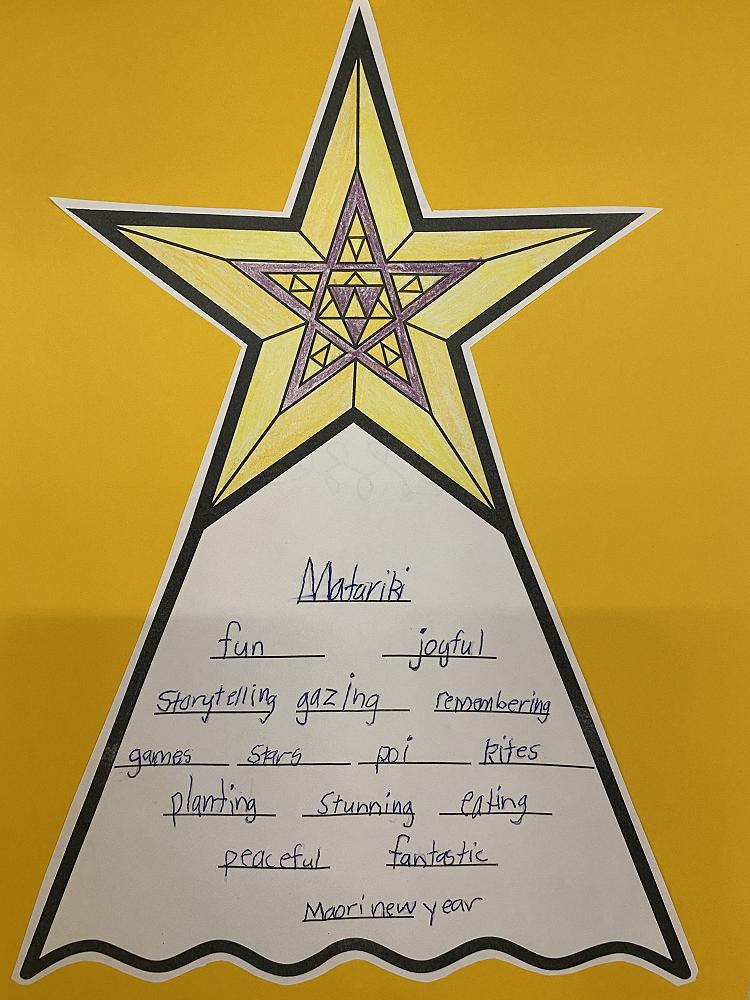 Matariki
fun joyful
Storytelling gazing remembering
games stars poi kites
planting Stunning eating
peaceful fantastic
Maori new year